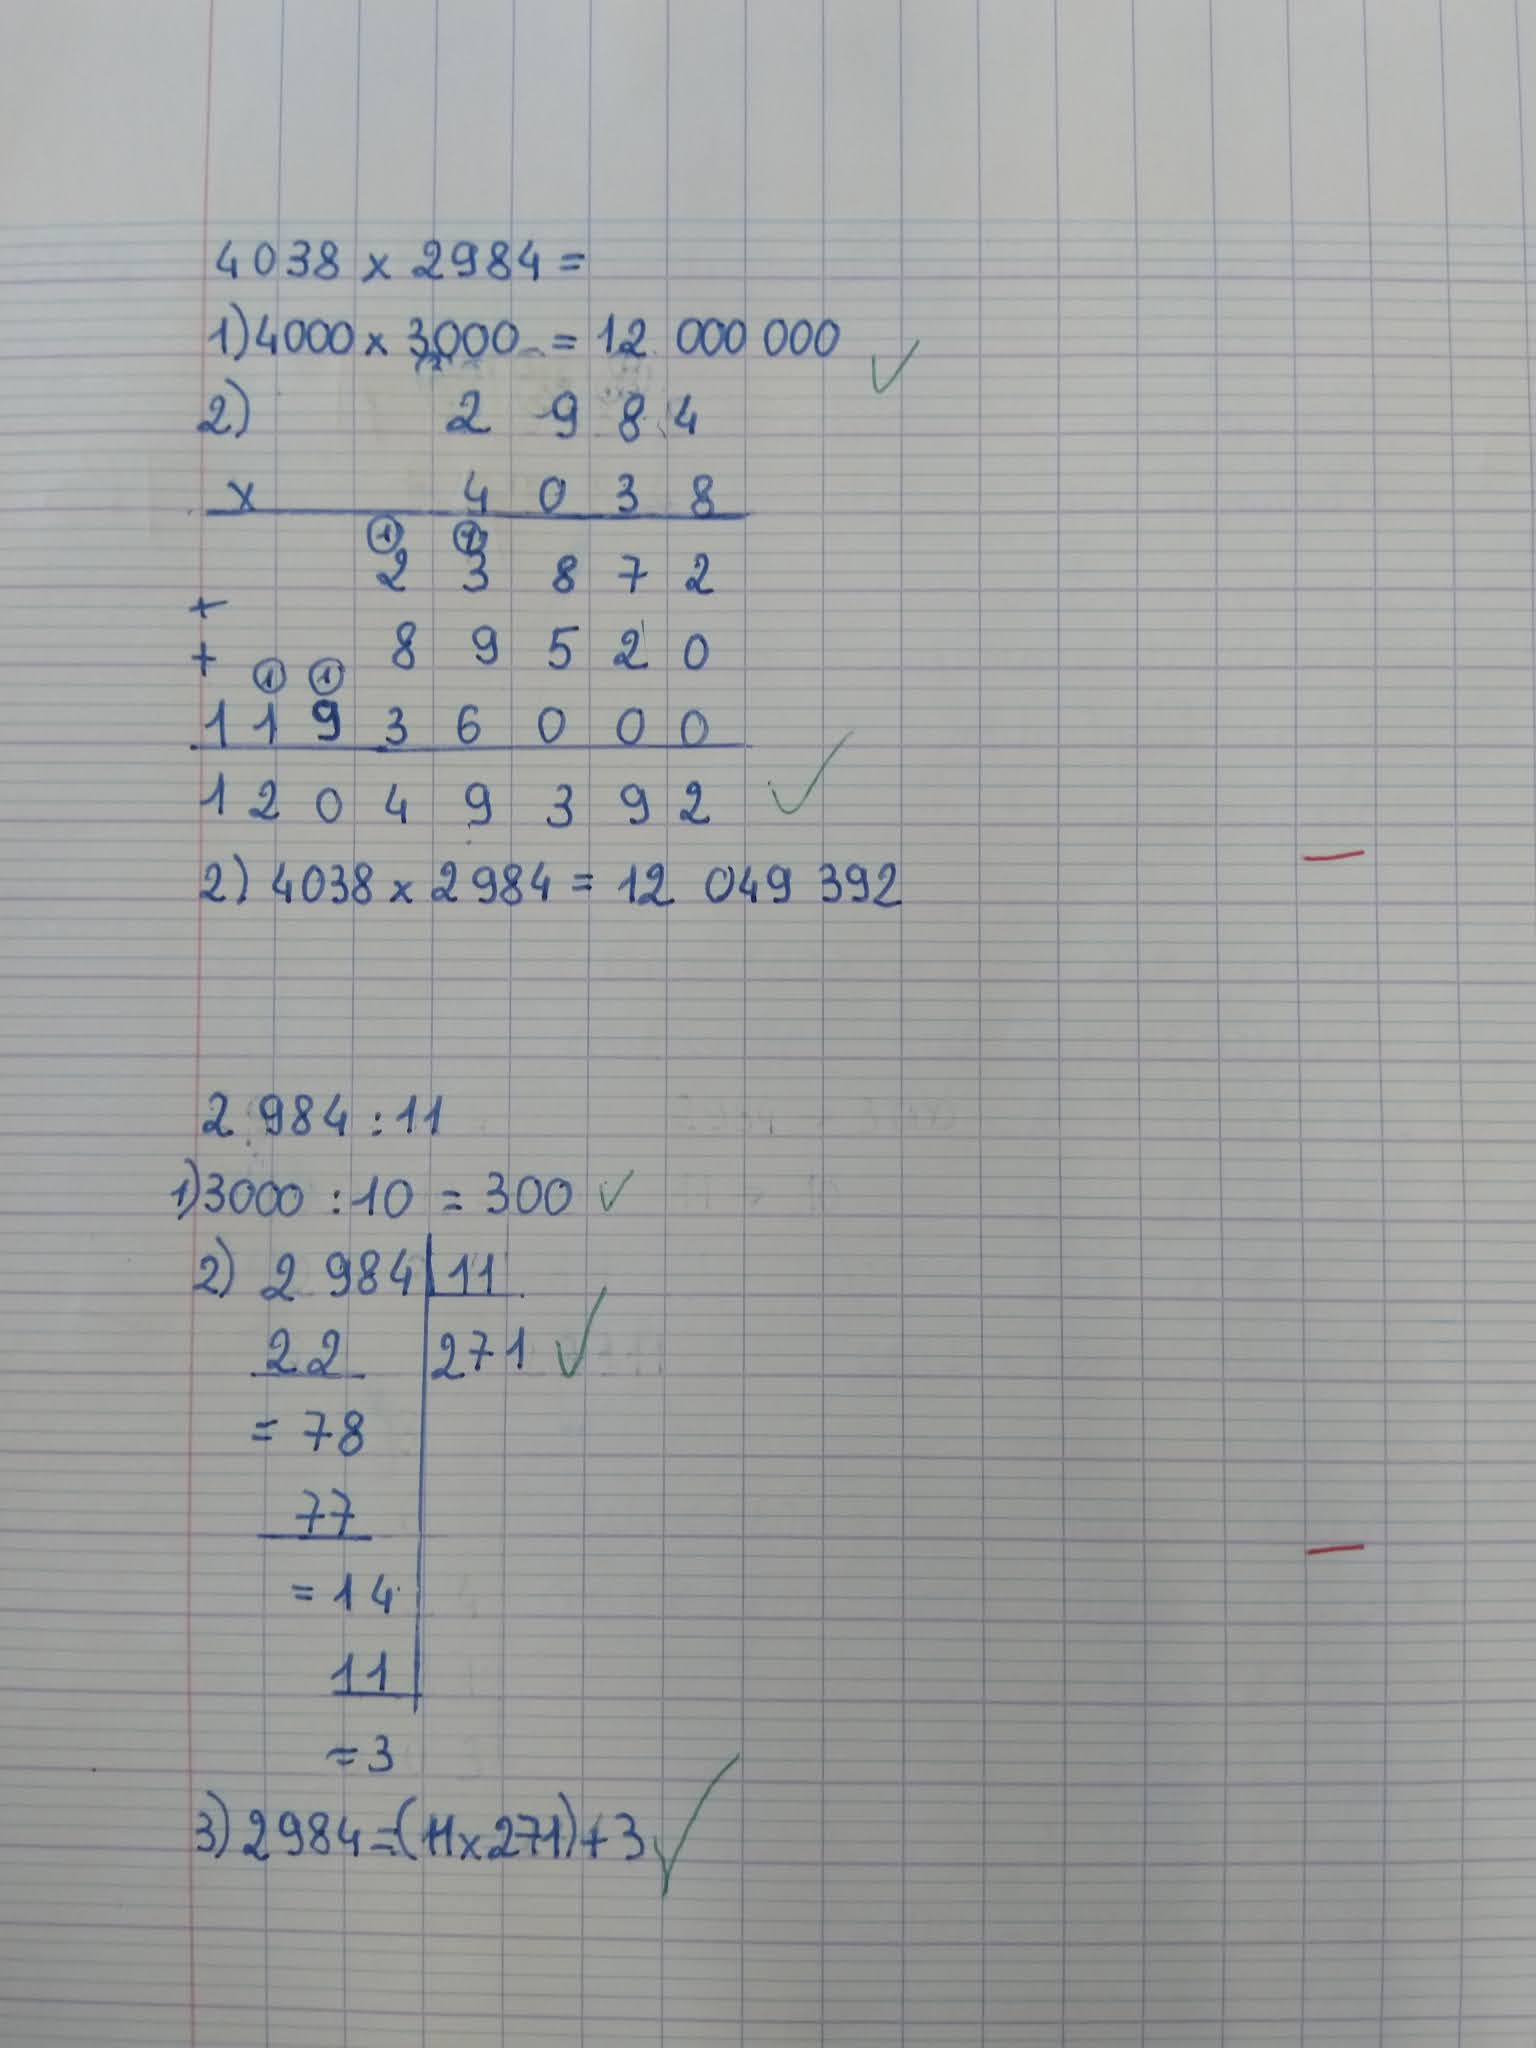 4038 x 2984 =
1) 4000 x 3000 = 12 000 000
2) 2 9 8 4
x 4 0 3 8
1 1
2 3 8 7 2
+
+ 8 9 5 2 0
1 1
1 1 9 3 6 0 0 0
1 2 0 4 9 3 9 2
2) 4038 x 2984 = 12 049 392
2 984 : 11
1) 3000 : 10 = 300
2) 2 984 11
22 271
= 78
77
= 14
11
= 3
3) 2984 = (11x271)+3